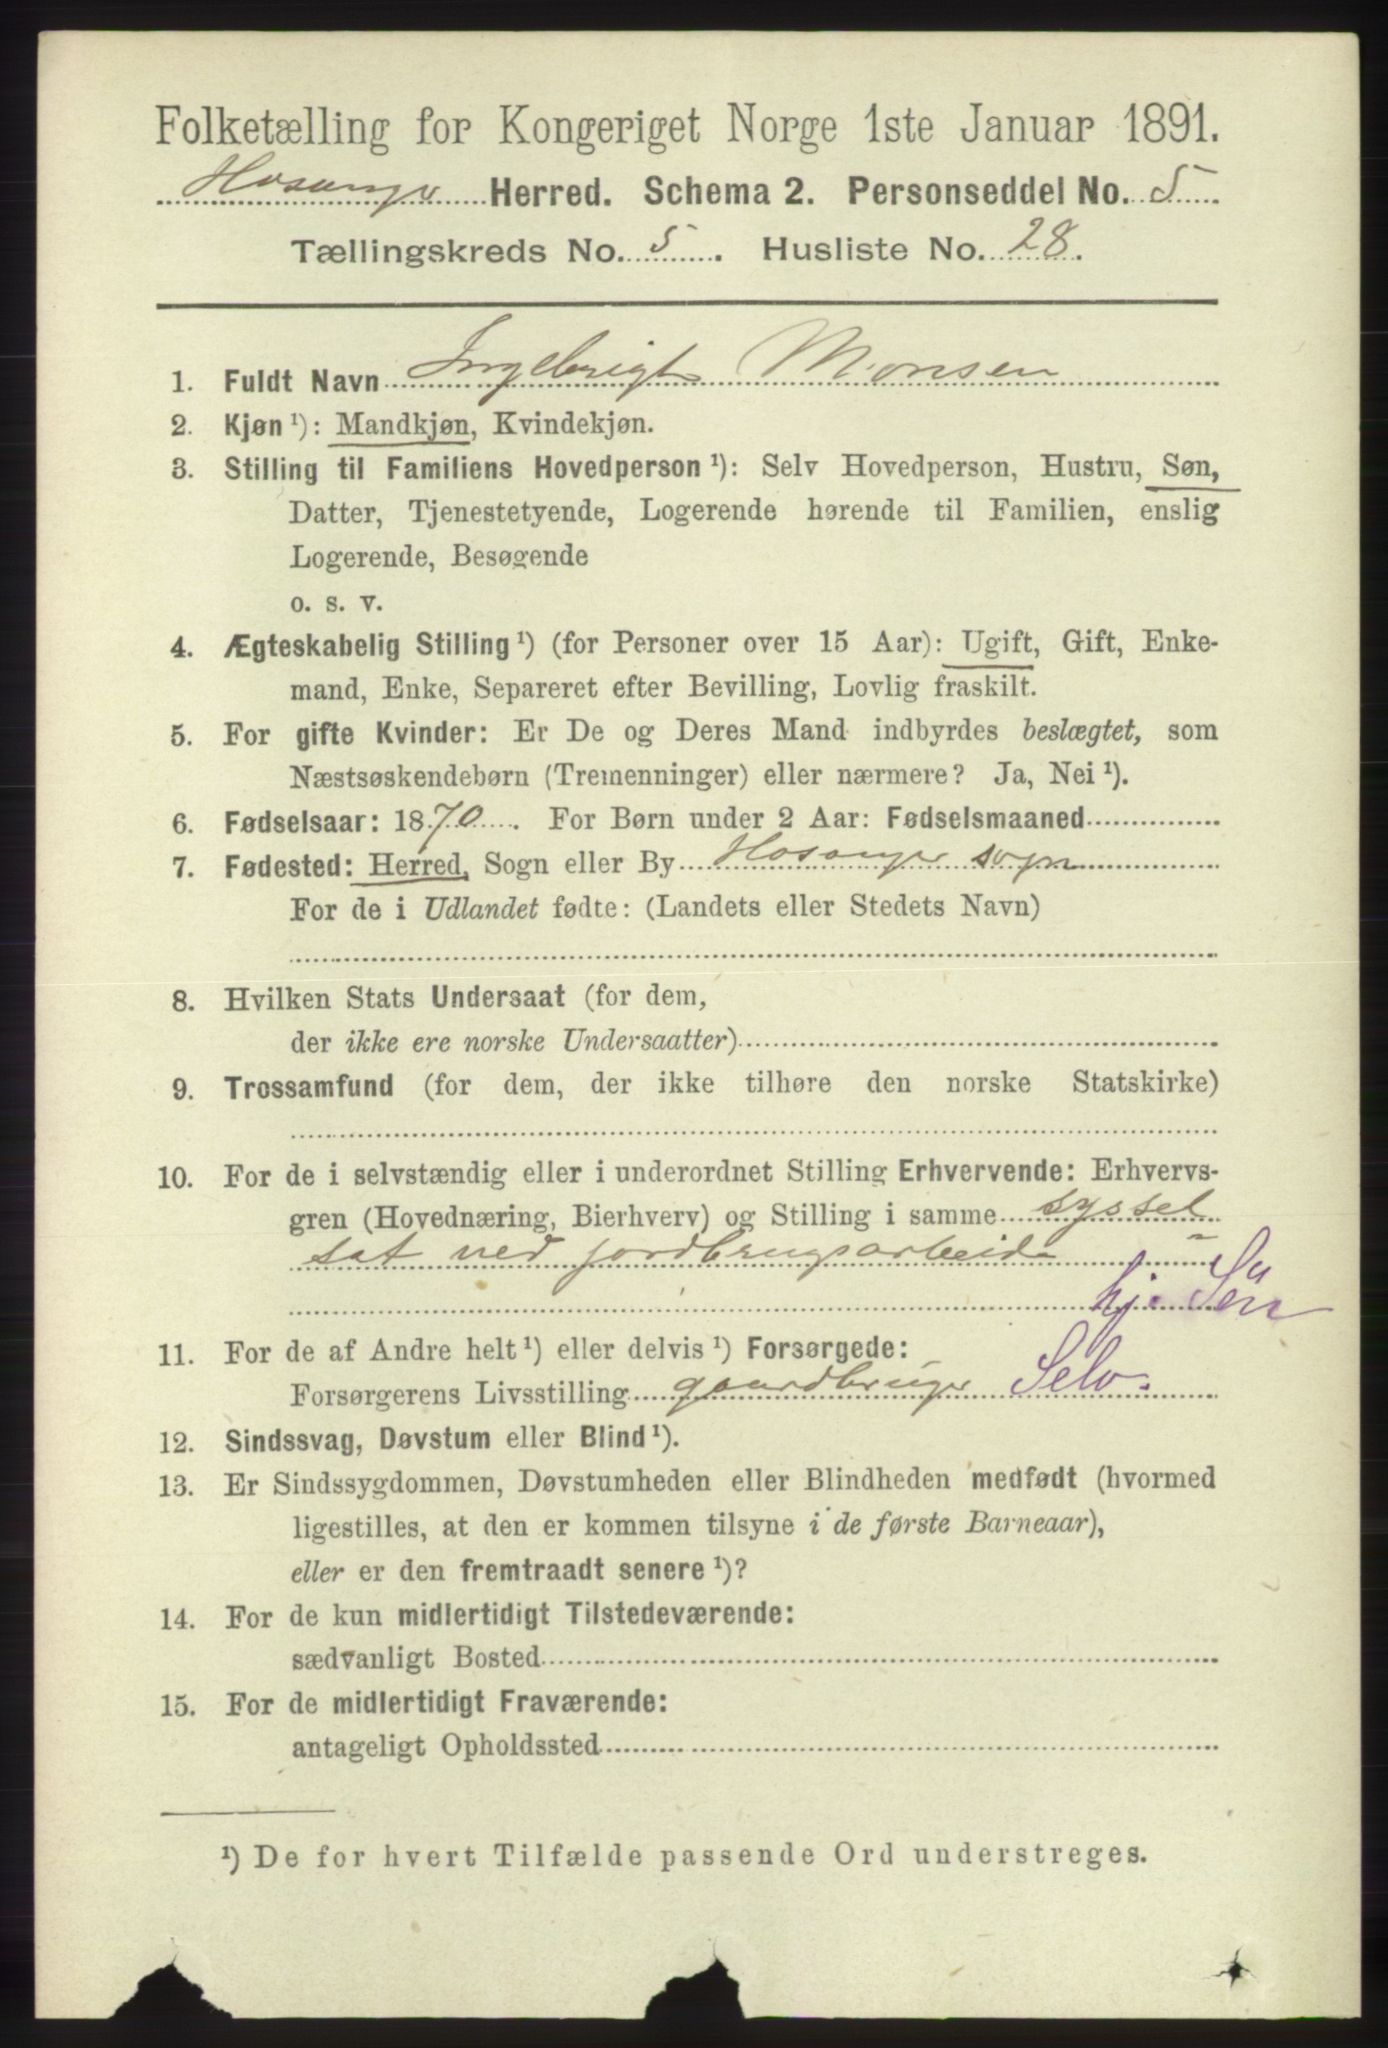 Folketælling for Kongeriget Norge 1ste Januar 1891.
Hosanger Herred. Schema 2. Personseddel No. 5
Tællingskreds No. 5. Husliste No. 28.
1. Fuldt Navn Ingebrigt Monsen
2. Kjøn ¹): Mandkjøn, Kvindekjøn.
3. Stilling til Familiens Hovedperson ¹): Selv Hovedperson, Hustru, Søn,
Datter, Tjenestetyende, Logerende hørende til Familien, enslig
Logerende, Besøgende
o. s. v.
4. Ægteskabelig Stilling ¹) (for Personer over 15 Aar): Ugift, Gift, Enke-
mand, Enke, Separeret efter Bevilling, Lovlig fraskilt.
5. For gifte Kvinder: Er De og Deres Mand indbyrdes beslægtet, som
Næstsøskendebørn (Tremenninger) eller nærmere? Ja, Nei ¹).
6. Fødselsaar: 1870. For Børn under 2 Aar: Fødselsmaaned
7. Fødested: Herred, Sogn eller By Hosanger sogn
For de i Udlandet fødte: (Landets eller Stedets Navn)
8. Hvilken Stats Undersaat (for dem,
der ikke ere norske Undersaatter)
9. Trossamfund (for dem, der ikke tilhøre den norske Statskirke)
10. For de i selvstændig eller i underordnet Stilling Erhvervende: Erhvervs-
gren (Hovednæring, Bierhverv) og Stilling i samme syssel
sat ved jordbrugsarbeide
hj. Sön
11. For de af Andre helt ¹) eller delvis ¹) Forsørgede:
Forsørgerens Livsstilling gaardbruger Selv.
12. Sindssvag, Døvstum eller Blind ¹).
13. Er Sindssygdommen, Døvstumheden eller Blindheden medfødt (hvormed
ligestilles, at den er kommen tilsyne i de første Barneaar),
eller er den fremtraadt senere ¹)?
14. For de kun midlertidigt Tilstedeværende:
sædvanligt Bosted
15. For de midlertidigt Fraværende:
antageligt Opholdssted
¹) De for hvert Tilfælde passende Ord understreges.